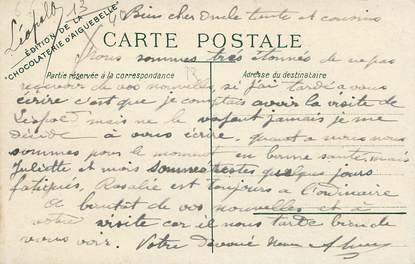 Bien cher Oncle tante et cousins
ÉDITION DE LA
"CHOCOLATERIE D'AIGUEBELLE"
CARTE POSTALE
Nous sommes très étonnés de ne pas
Partie réservée à la correspondance
Adresse du destinataire
recevoir de vos nouvelles, si j'ai tardé a vous
écrire c'est que je comptais avoir la visite de
mais ne le voyant jamais je me
décide à vous écrire, quant a nous nous
sommes pour le moment en bonne santé, mais
Juliette et moi sommes restés quelque jours
fatigués, Rosalie est toujours a l'ordinaire
A bientôt de vos nouvelles et à
votre visite car il nous tarde bien de
vous voir. Votre Dévoué